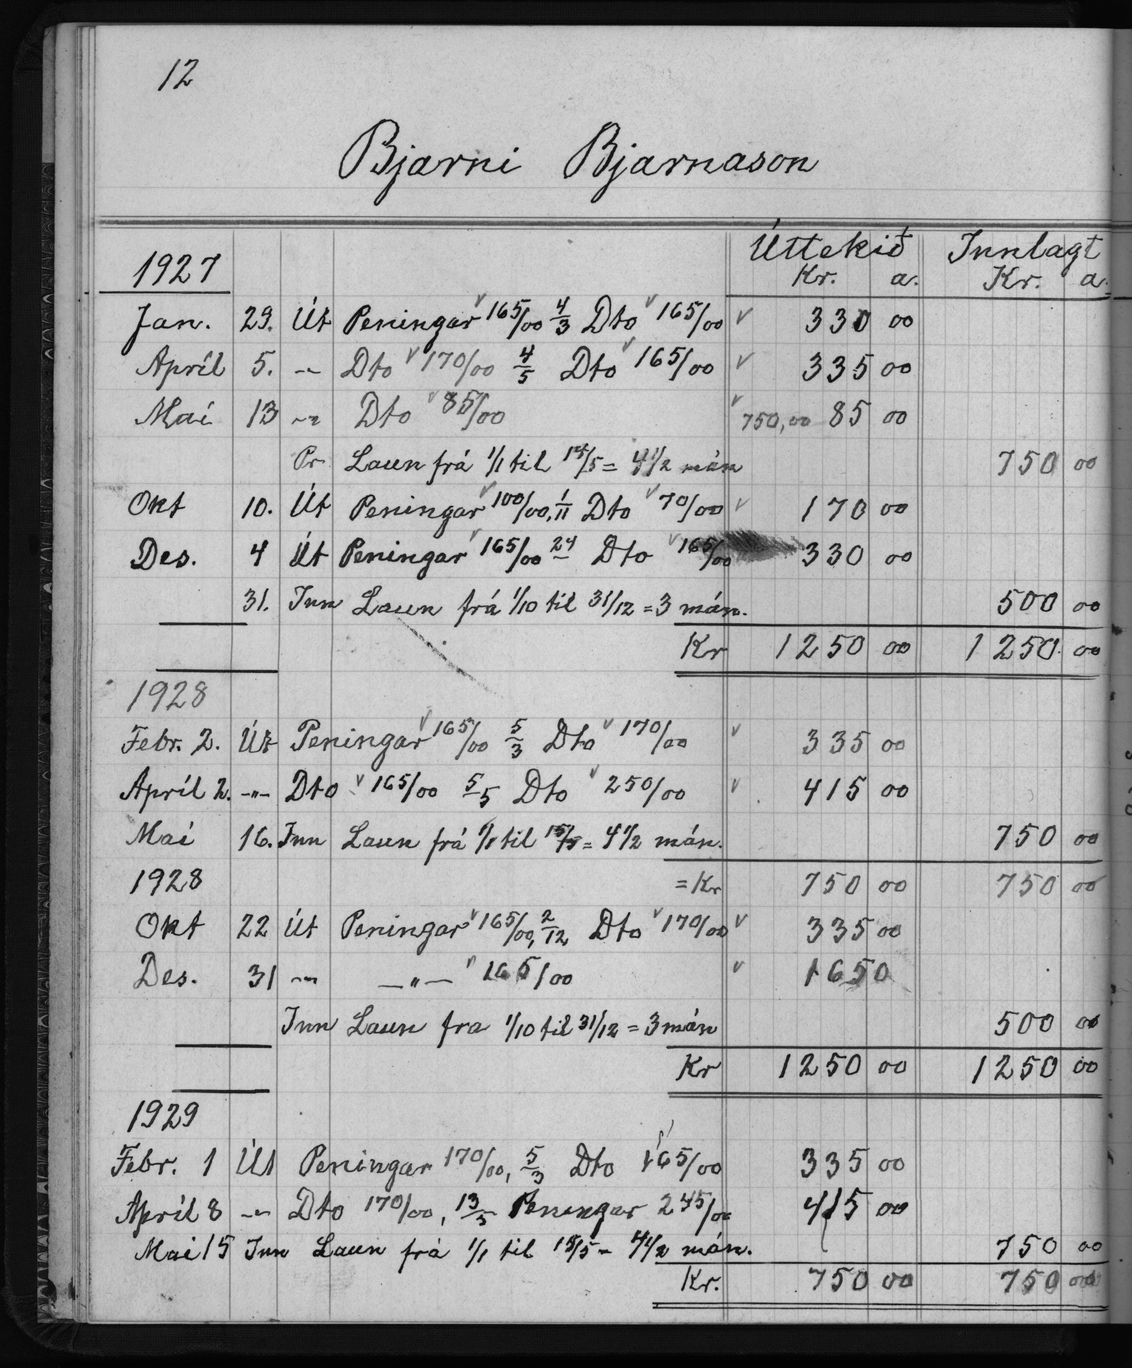 12
Bjarni Bjarnason
Úttekið Innlagt
1927 Kr. a. Kr. a.
Jan. 29. Út Peningar 165/00 4/3 Dto 165/00 330 00
Apríl 5. -"- Dto 170/00 4/5 Dto 165/00 335 00
Maí 13 -"- Dto 85/00 750,00 85 00
Pr Laun frá 1/1 til 15/5 = 4 1/2 mán 750 00
Okt 10. Út Peningar 100/00, 1/11 Dto 70/00 170 00
Des. 4 Út Peningar 165/00 24 Dto 165/00 330 00
31. Inn Laun frá 1/10 til 31/12 = 3 mán. 500 00
Kr 1250 00 1250 00
1928
Febr. 2. Út Peningar 165/00 5/3 Dto 170/00 335 00
Apríl 2. -"- Dto 165/00 5/5 Dto 250/00 415 00
Maí 16. Inn Laun frá 1/1 til 15/5 = 4 1/2 mán. 750 00
1928 = Kr 750 00 750 00
Okt 22 Út Peningar 165/00, 2/12 Dto 170/00 335 00
Des. 31 -"- -"- 165/00 165 0
Inn Laun fra 1/10 til 31/12 = 3 mán 500 00
Kr 1250 00 1250 00
1929
Febr. 1 Út Peningar 170/00, 5/3 Dto 165/00 335 00
Apríl 8 -"- Dto 170/00, 13/5 Peningar 245/00 415 00
Maí 15 Inn Laun frá 1/1 til 15/5 = 4 1/2 mán. 750 00
Kr. 750 00 750 00